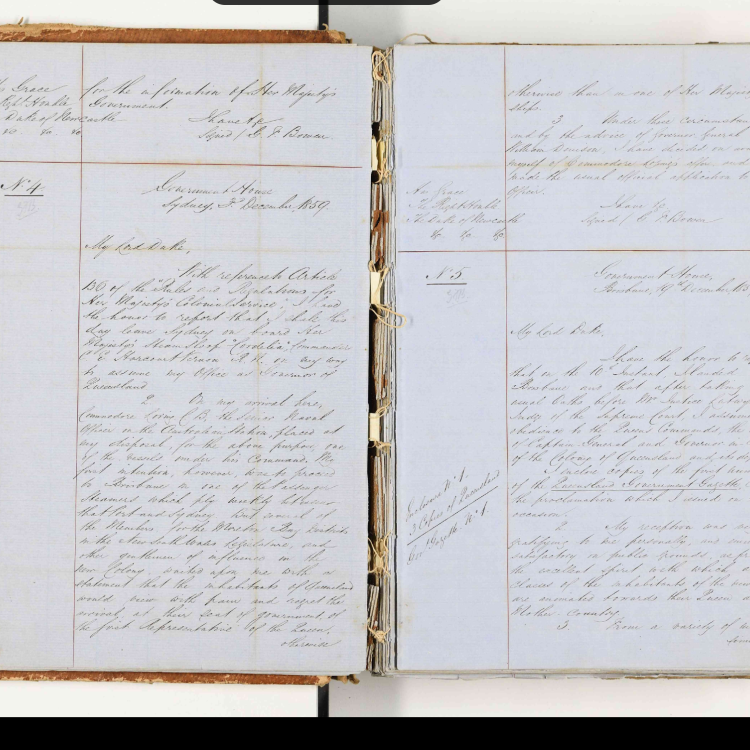 His Grace
for the information of Her Majesty's
Government
Duke of Newcastle
&c &c &c
I have &c
Signed / G F Bowen
No 4
Government House
Sydney, 5th December, 1859.
My Lord Duke,
With reference to Article
136 of the "Rules and Regulations for
Her Majesty's Colonial Service," I have
the honor to report that I shall this
day leave Sydney on board Her
Majesty's Steam Sloop "Cordelia" Commander
C. E. Harcourt Vernon R.N. on my way
to assume my Office as Governor of
Queensland
2. On my arrival here,
Commodore Loring C.B. the Senior Naval
Officer on the Australian Station, placed at
my disposal, for the above purpose, one
of the vessels under his Command. My
first intention, however, was to proceed
to Brisbane in one of the Passenger
Steamers which ply weekly between
that Port and Sydney but several of
the Members for the Moreton Bay Districts
in the New South Wales Legislature, and
other gentlemen of influence in the
new Colony, waited upon me with a
statement that the inhabitants of Queensland
would view with pain and regret the
arrival at their seat of government, of
the first Representative of the Queen,
otherwise
otherwise than in one of Her Majesty's
ships.
3. Under these circumstances
and by the advice of Governor General
William Denison, I have decided on
myself of Commodore Loring's offer and
made the usual official application to
Officer.
His Grace
The Right Honble
The Duke of Newcastle
&c &c &c
I have &c
Signed / G F Bowen
No 5
Government House,
Brisbane, 19th December
My Lord Duke,
I have the honor to
that on the 10th Instant I landed
Brisbane and that after taking
usual Oaths before Mr Justice Lutwyche
Judge of the Supreme Court I assumed
obedience to the Queen's Commands, the
of Captain General and Governor in
of the Colony of Queensland and its
I enclose copies of the first number
of the Queensland Government Gazette
the proclamation which I issued on
occasion.
Enclosure No 1
3 Copies of Queensland
Govt Gazette No 1
2. My reception was
gratifying to me personally, and
satisfactory on public grounds, as
the excellent spirit with which
classes of the inhabitants of the new
are animated towards their Queen
Mother country.
3. From a variety of